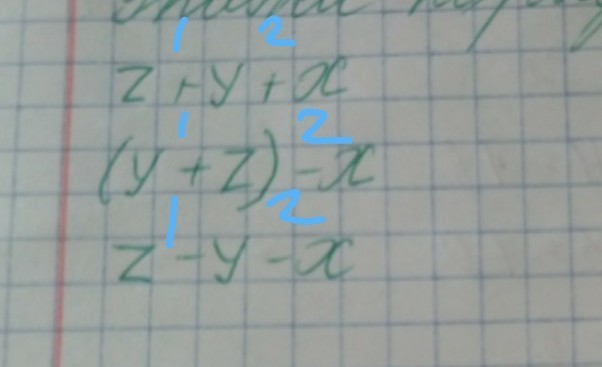 1 2
z + y + x
1 2
(y + z) - x
1 2
z - y - x